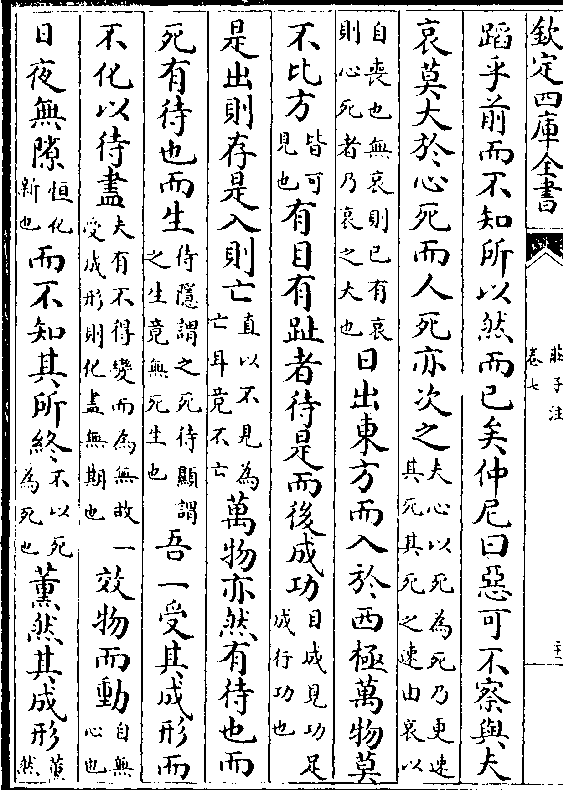 欽定四庫全書
莊子注
卷七
蹈乎前而不知所以然而已矣仲尼曰惡可不察與夫
哀莫大於心死而人死亦次之夫心以死為死乃更速其死其死之速由哀以
自喪也無哀則已有哀則心死者乃哀之大也日出東方而入於西極萬物莫
不比方皆可見也有目有趾者待是而後成功目成見功足成行功也
是出則存是入則亡直以不見為亡耳竟不亡萬物亦然有待也而
死有待也而生待隱謂之死待顯謂之生竟無死生也吾一受其成形而
不化以待盡夫有不得變而為無故一受成形則化盡無期也效物而動自無心也
日夜無隙恒化新也而不知其所終不以死為死也薰然其成形薰然